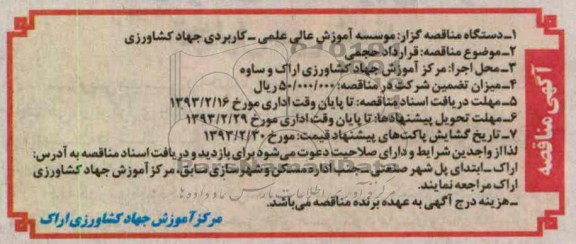 آگهی مناقصه
۱ـ دستگاه مناقصه گزار: موسسه آموزش عالی علمی ـ کاربردی جهاد کشاورزی
۲ـ موضوع مناقصه: قرارداد حجمی
۳ـ محل اجرا: مرکز آموزش جهاد کشاورزی اراک و ساوه
۴ـ میزان تضمین شرکت در مناقصه: ۵۰/۰۰۰/۰۰۰ ریال
۵ـ مهلت دریافت اسناد مناقصه: تا پایان وقت اداری مورخ ۱۳۹۳/۲/۱۶
۶ـ مهلت تحویل پیشنهادها: تا پایان وقت اداری مورخ ۱۳۹۳/۲/۲۹
۷ـ تاریخ گشایش پاکت‌های پیشنهاد قیمت: مورخ ۱۳۹۳/۲/۳۰
لذا از واجدین شرایط و دارای صلاحیت دعوت می‌شود برای بازدید و دریافت اسناد مناقصه به آدرس:
اراک ـ ابتدای پل شهر صنعتی ـ جنب اداره مسکن و شهرسازی سابق، مرکز آموزش جهاد کشاورزی
اراک مراجعه نمایند.
ـ هزینه درج آگهی به عهده برنده مناقصه می‌باشد.
مرکز آموزش جهاد کشاورزی اراک